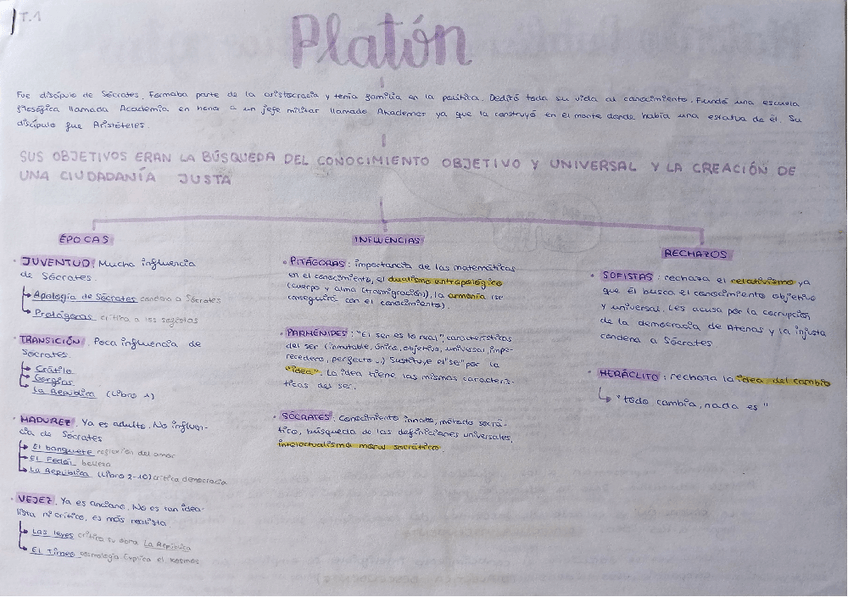 T.1
Platón
Fue discípulo de Sócrates. Formaba parte de la aristocracia y tenía familia en la política. Dedicó toda su vida al conocimiento. Fundó una escuela
filosófica llamada Academia en honor a un jefe militar llamado Akademos ya que la construyó en el monte donde había una estatua de él. Su
discípulo fue Aristóteles.
SUS OBJETIVOS ERAN LA BÚSQUEDA DEL CONOCIMIENTO OBJETIVO Y UNIVERSAL Y LA CREACIÓN DE
UNA CIUDADANÍA JUSTA
ÉPOCAS
· JUVENTUD: Mucha influencia
de Sócrates
Apología de Sócrates condena a Sócrates
Protágoras crítica a los sofistas
· TRANSICIÓN. Poca influencia de
Sócrates.
Crátilo
Gorgias
La República (Libro 1)
· MADUREZ. Ya es adulto. No influen-
cia de Sócrates
El banquete reflexión del amor
El Fedón belleza
La República (Libro 2-10) crítica democracia
· VEJEZ. Ya es anciano. No es tan idea-
lista ni crítico, es más realista
Las leyes crítica su obra La República
El Timeo cosmología explica el kosmos
INFLUENCIAS
· PITÁGORAS: importancia de las matemáticas
en el conocimiento, el dualismo antropológico
(cuerpo y alma (trasmigración)), la armonía (se
conseguirá con el conocimiento).
· PARMÉNIDES: "El ser es lo real", características
del ser (inmutable, única, objetivo, universal, impe-
recedero, perfecto...) Sustituye el "se" por la
"idea". La idea tiene las mismas caracterís-
ticas del ser.
· SÓCRATES. Conocimiento innato, método socrá-
tico, búsqueda de las definiciones universales,
intelectualismo moral socrático.
RECHAZOS
· SOFISTAS: rechaza el relativismo ya
que él busca el conocimiento objetivo
y universal. Les acusa por la corrupción
de la democracia de Atenas y la injusta
condena a Sócrates
· HERÁCLITO: rechaza la idea del cambio
"todo cambia, nada es"